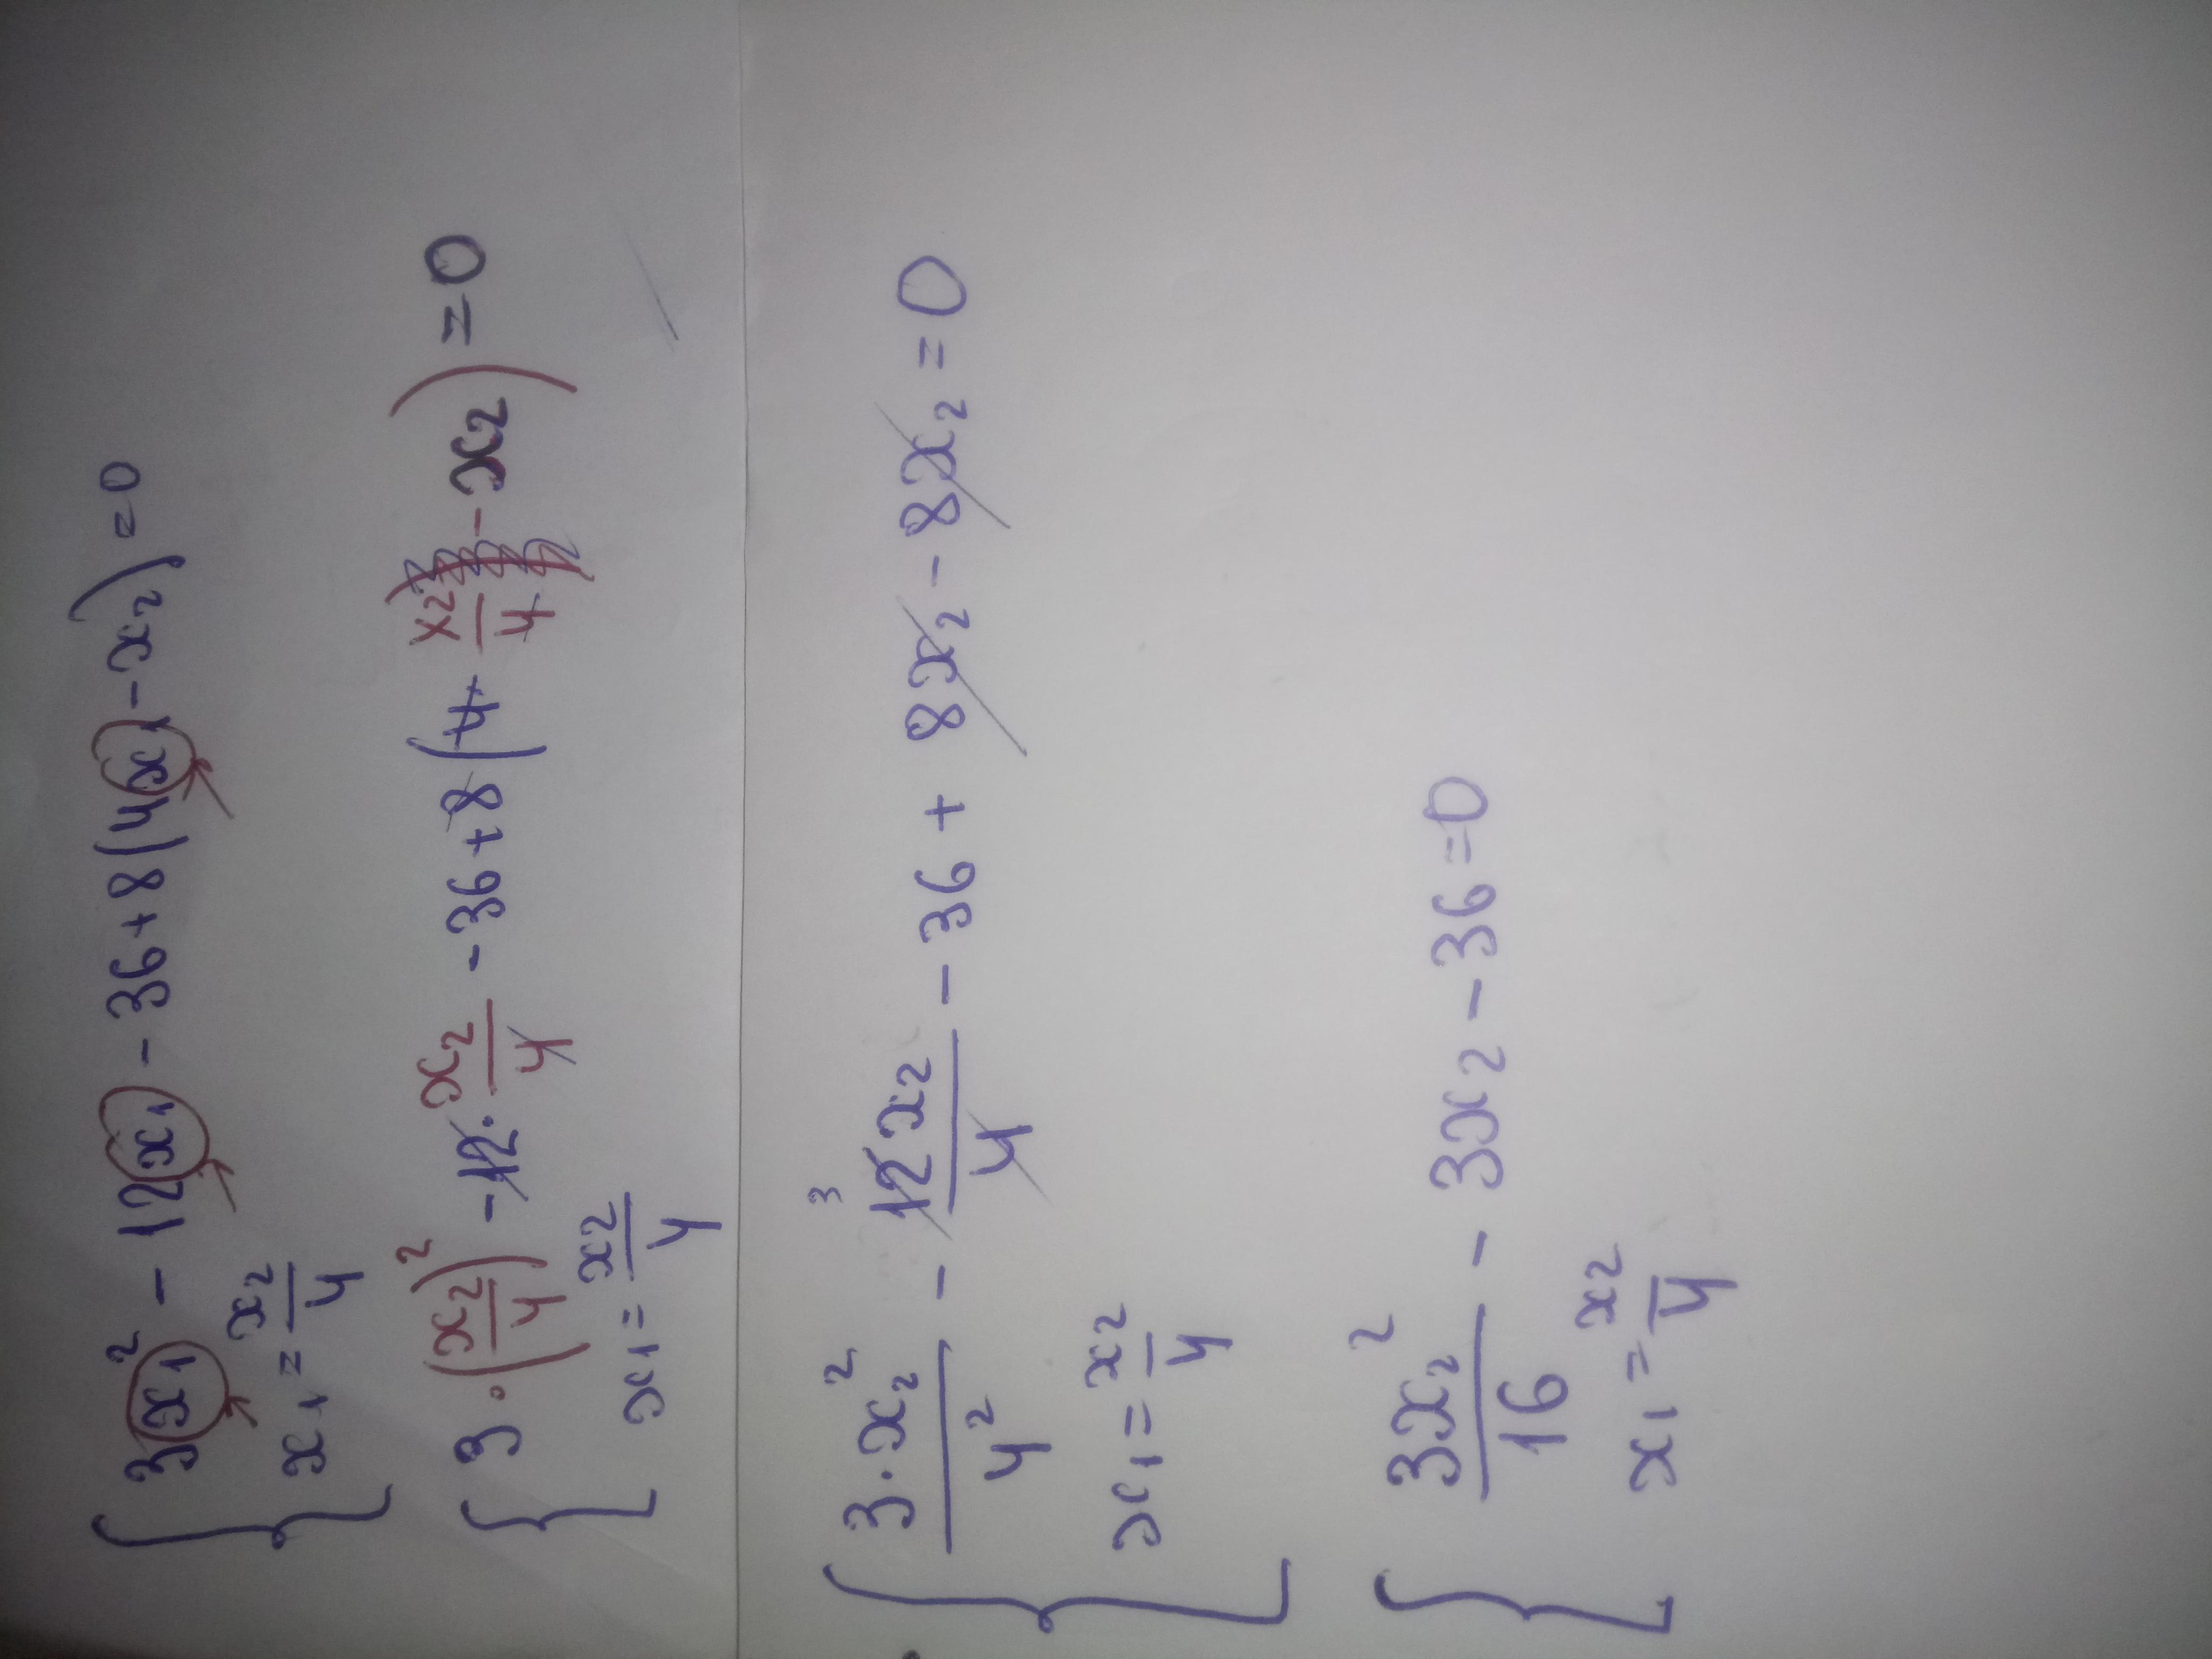 3x₁² - 12x₁ - 36 + 8(4x₁ - x₂) = 0
x₁ = x₂/4
3·(x₂/4)² - 12·x₂/4 - 36 + 8(4·x₂/4 - x₂) = 0
x₁ = x₂/4
3·x₂²/4² - 12x₂/4 - 36 + 8x₂ - 8x₂ = 0
3
x₁ = x₂/4
3x₂²/16 - 3x₂ - 36 = 0
x₁ = x₂/4